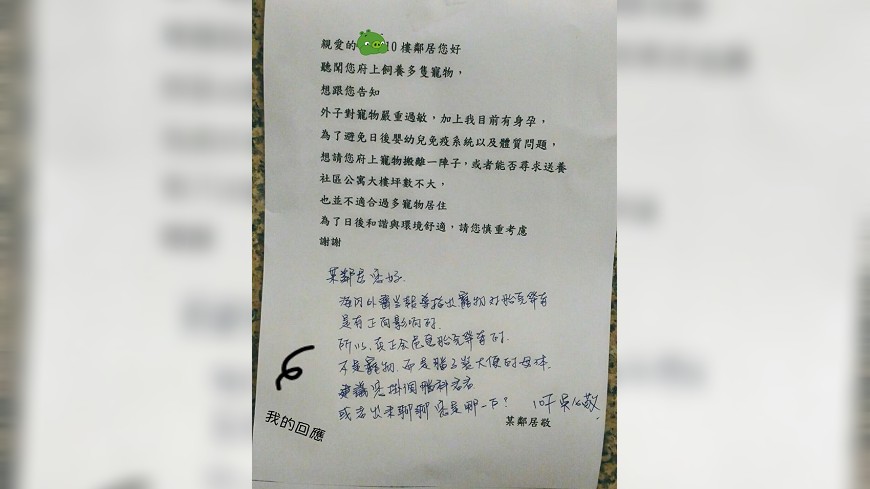 親愛的 10樓鄰居您好
聽聞您府上飼養多隻寵物，
想跟您告知
外子對寵物嚴重過敏，加上我目前有身孕，
為了避免日後嬰幼兒免疫系統以及體質問題，
想請您府上寵物搬離一陣子，或者能否尋求送養
社區公寓大樓坪數不大，
也並不適合過多寵物居住
為了日後和諧與環境舒適，請您慎重考慮
謝謝
某鄰居您好.
海內外醫學報導指出寵物對胎兒發育
是有正向影響的.
所以,真正會危害胎兒發育的.
不是寵物.而是腦子裝大便的母体.
建議您掛個腦科看看
或者出來聊聊 您是哪一戶? 10F 吳公敬.
某鄰居敬
我的回應